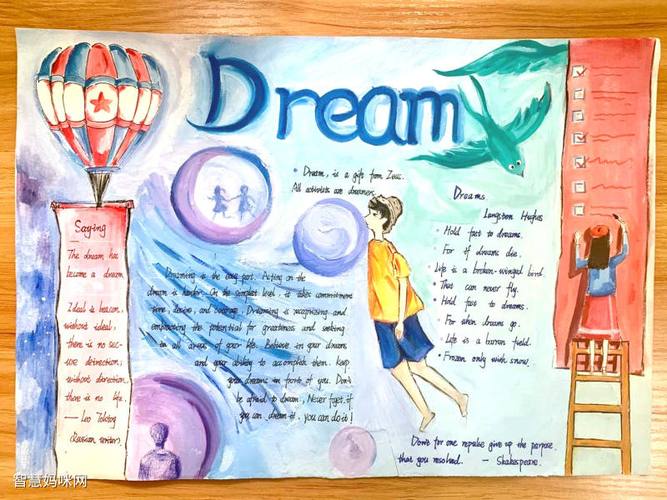 Dream
Saying
The dream has
become a dream
Ideal is beacon,
without ideal,
there is no sec-
ure detrection;
without derection
there is no life.
— Leo Tolstoy
(Russian writer).
Dream, is a gift from Zeus.
All activists are dreamers.
Dreaming is the easy part. Acting on the
dream is harder. On the simplest level, it takes commitment
time, desire, and courage. Dreaming is recognizing and
embracing the potential for greatness and seeking
in all areas of your life. Believe in your dream
and your ability to accomplish them. Keep
your dreams in front of you. Don't
be afraid to dream, Never forget, if
you can dream it, you can do it!
Dreams
Langston Hughes
Hold fast to dreams.
For if dreams die.
Life is a broken-winged bird.
That can never fly.
Hold fast to dreams.
For when dreams go.
Life is a barren field.
Frozen only with snow.
Don't for one repulse give up the purpose
that you resolved. — Shakespeare.
智慧妈咪网